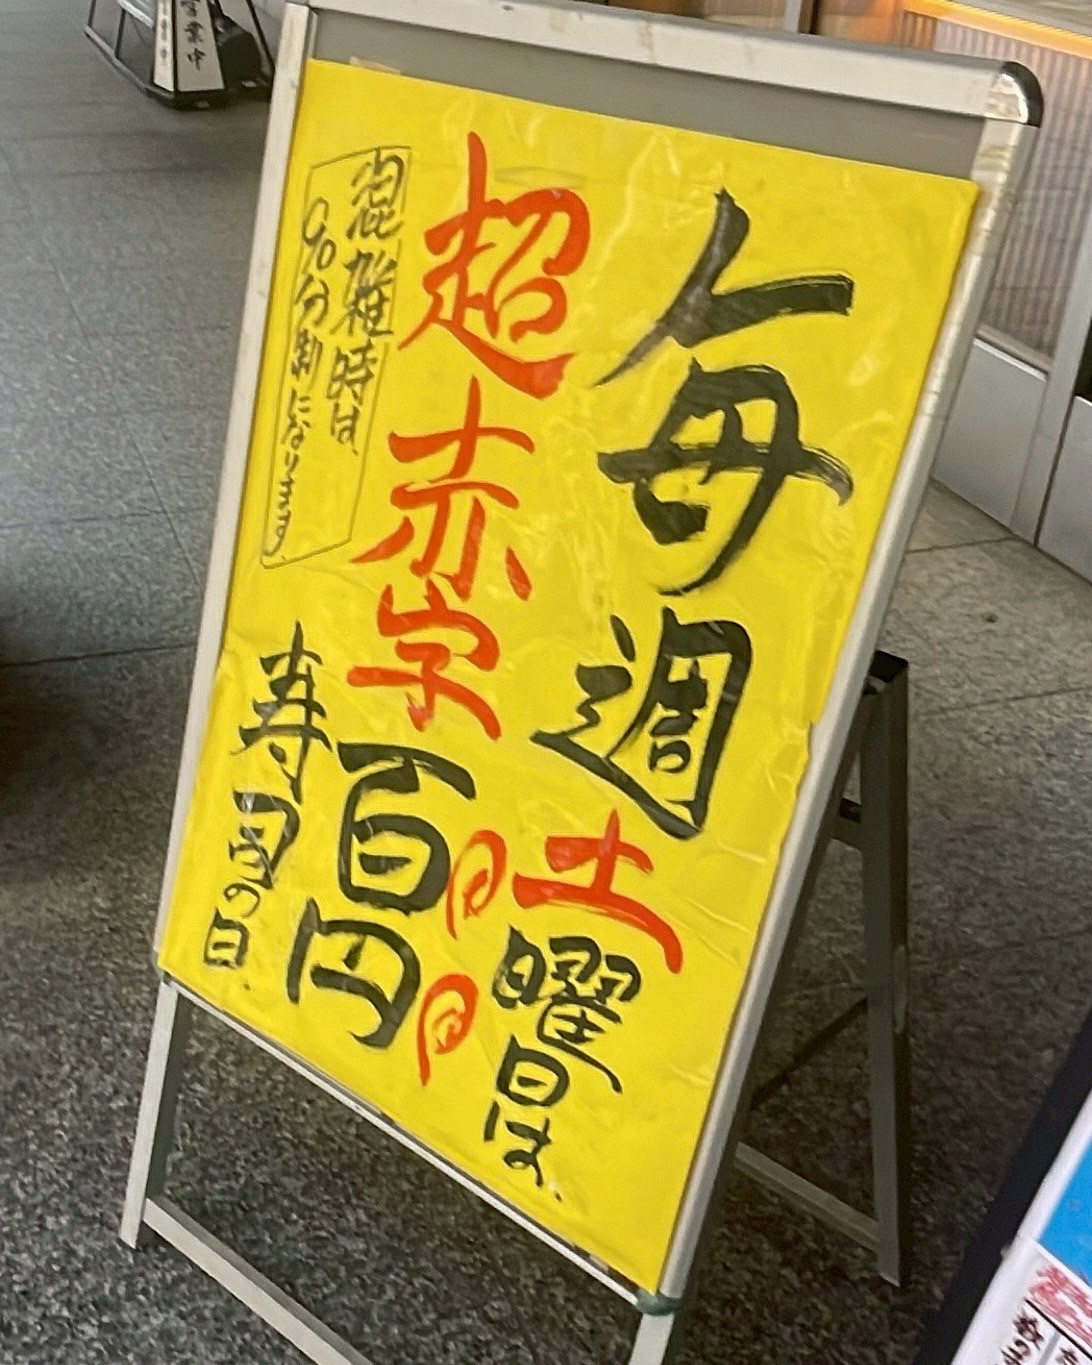 毎週土曜日は、
超赤字百円
寿司の日.
混雑時は、
90分制になります。
営業中